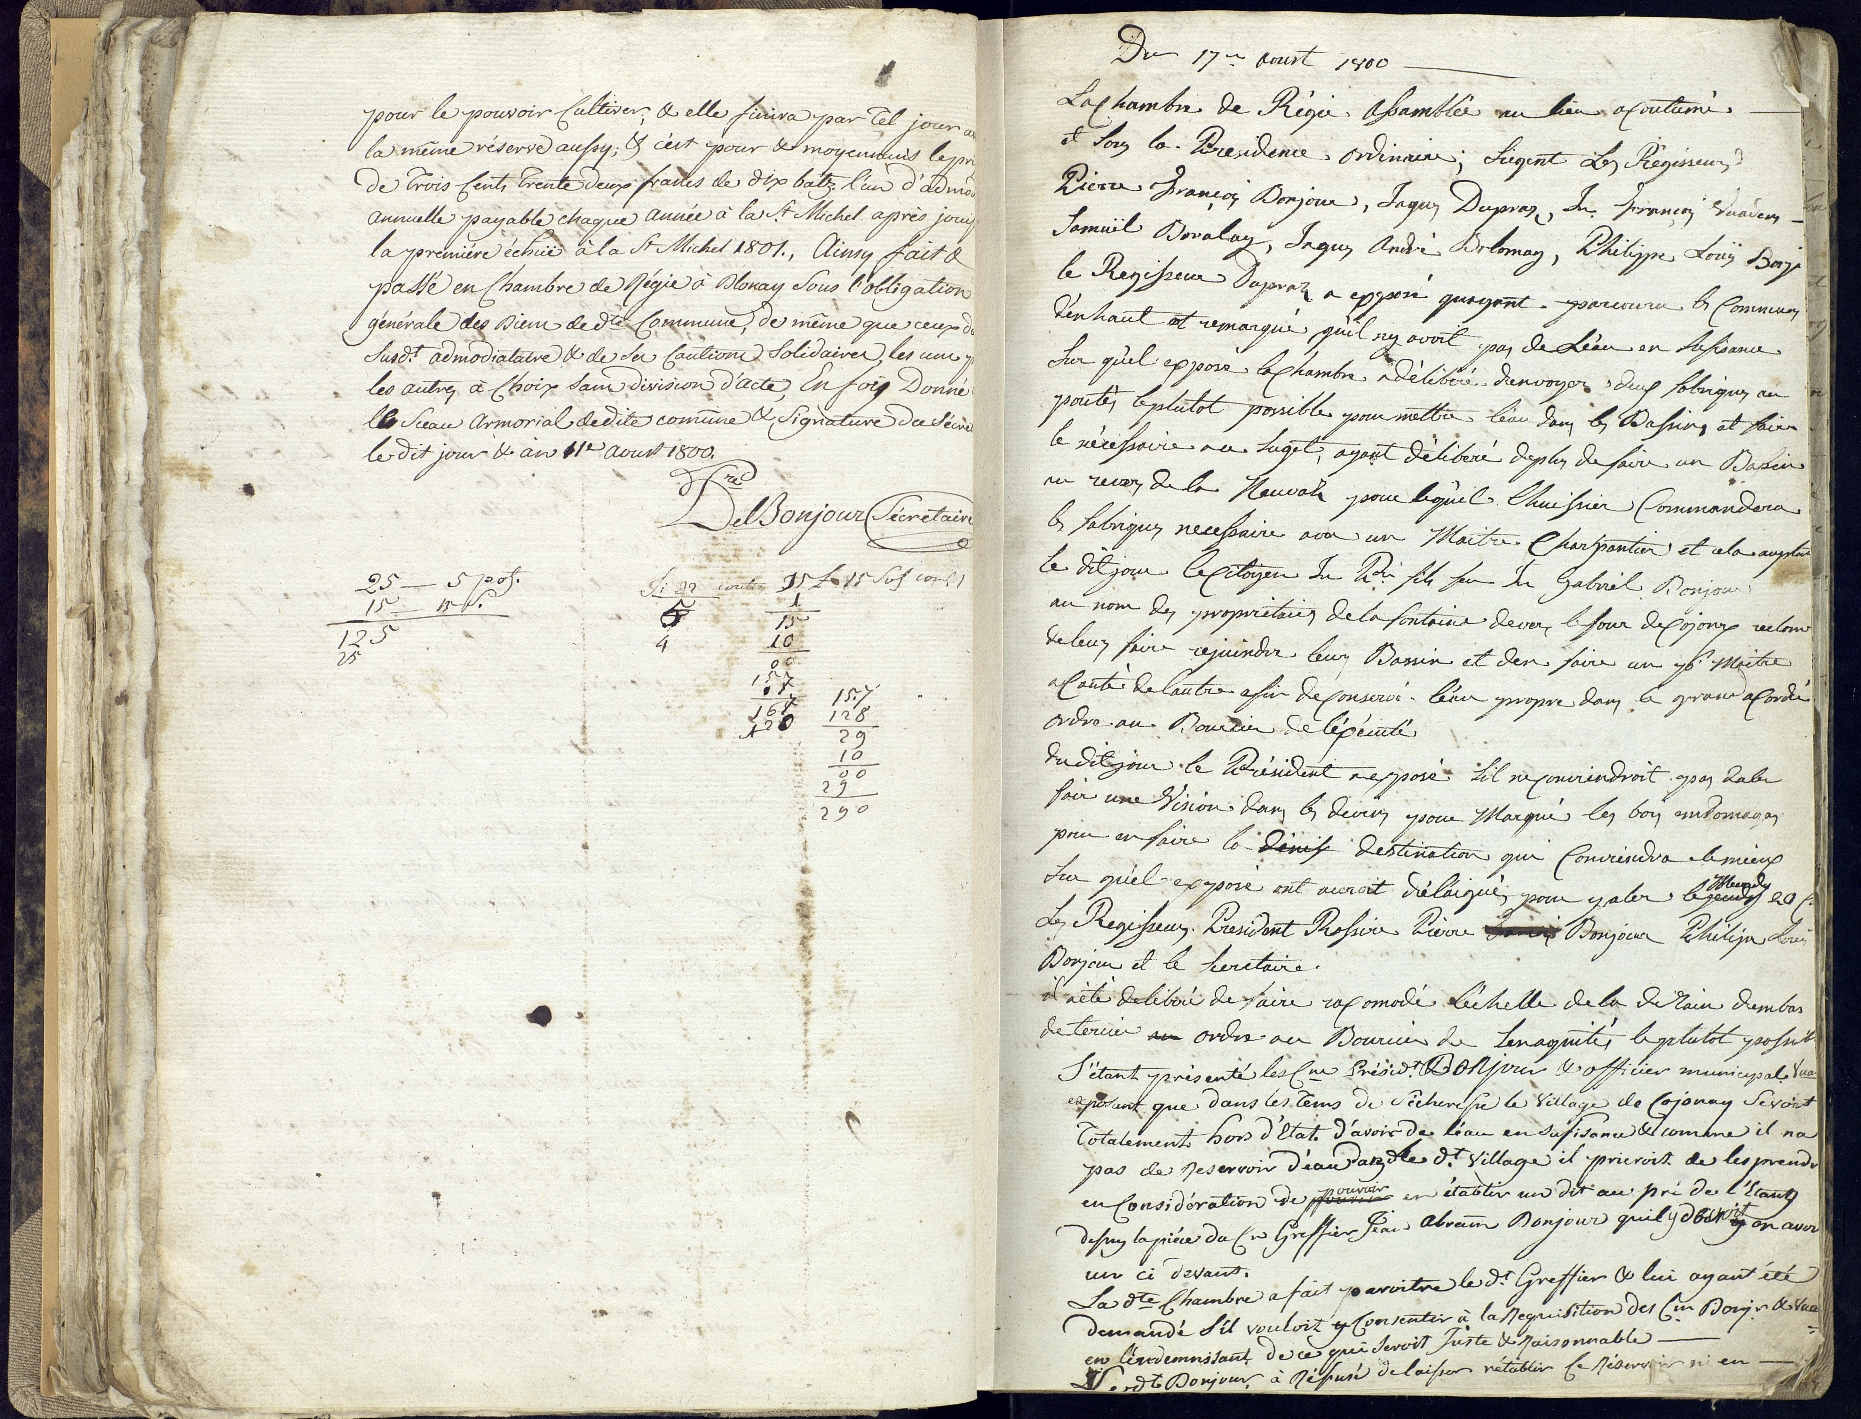 pour le pouvoir Cultiver, & elle finira par Tel jour a
la même réserve aussy; & c'est pour & moyennant le pri
de Trois Cents Trente deux francs de dix batz l'un d'admod
annuelle payable chaque année à la St Michel après jouy
la première échüe à la St Michel 1801., Ainsy fait &
passé en Chambre de Régie à Blonay Sous l'obligation
générale des Biens de dte Commune, de même que ceux du
Susdt. admodiataire & de Ses Cautions Solidaires, les uns p
les autres à Choix Sans division d'acte, En foy Donné
le Sceau Armorial de dite comune & Signature du Sécret
le dit jour & an 11e aoust 1800.
Fred
DelBonjour Sécretaire
25 — 5 pot.
15
125
25
15
10
00
157
128
29
10
00
29
290
Du 17me aoust 1800
La Chambre de Régie assamblée au lieu acoutumé
et Sous la Presidence ordinaire; Siegent Les Régisseurs
Pierre François Bonjour, Jaques Dupraz, Jn. François
Samuël Boralay, Jaques André Bolomay, Philippe Louis Bonj
le Regisseur Dupraz a exposé quayant parcouru les Communs
d'enhaut et remarqué qu'il ny avoit pas de Léau en Sufisance
Sur qu'el exposé la Chambre a délibéré denvoyer deux fabriques au
poutes le plutot possible pour mettre léau dans les Bassins et faire
le nécessaire au Suget, ayant délibéré deplus de faire un Bassin
au revers de la Neuvaz pour lequel l'huissier Commandera
les fabriques necessaire avec un Maitre Charpantier et cela auplutot
le dit jour le Citoyen Jn fils feu Jn Gabriel Bonjour
au nom des propriétaires de la fontaine devers le four de Cojonex reclam
de leurs faire rejoindre leurs Bassin et den faire un pt. Maitre
a Couté de lautre afin de Conservé léau propre dans le grand acordé
ordre au Boursier de léxécuté
du dit jour le Président a exposé Sil ne Conviendroit pas daler
faire une Vision dans les devens pour Marqué les bois endomagés
pour en faire la destination qui Conviendra le mieux
Sur qu'el exposé ont auroit délégué pour y aler le Mercredy 20 C.
Les Regisseurs President Rossire Pierre Bonjour Philipe Louis
Bonjour et le Secretaire.
il a été deliberé de faire racomodé Léchelle de la de Rain dembas
de terrier ordre au Boursier de Senaquités le plutot possible
S'étant présenté les Cns Présidt. Bonjour & officier municipal Vua
exposant que dans les Tems de Sécheresse le Village de Cojonay Seroit
Totalement hors d'Etat d'avoir de l'éau en Sufisance & comme il na
pas de Reservoir d'éau dans le dt. Village il prieroit de les prendre
en Considération de pouvoir en établir un dit au pré de l'Etang
dessus la pièce du Cn Greffier Jean Abram Bonjour quil y en avoi
un ci devant.
La dte Chambre a fait paroitre le dt. Greffier & lui ayant été
demandé S'il vouloit Consentir à la Requisition des Cns Bonjr & Vua
en l'indemnisant de ce qui Seroit Juste & Raisonnable —
Le dt. Bonjour, à Réfusé de laisser rétablir Ce Réservoir ni en —